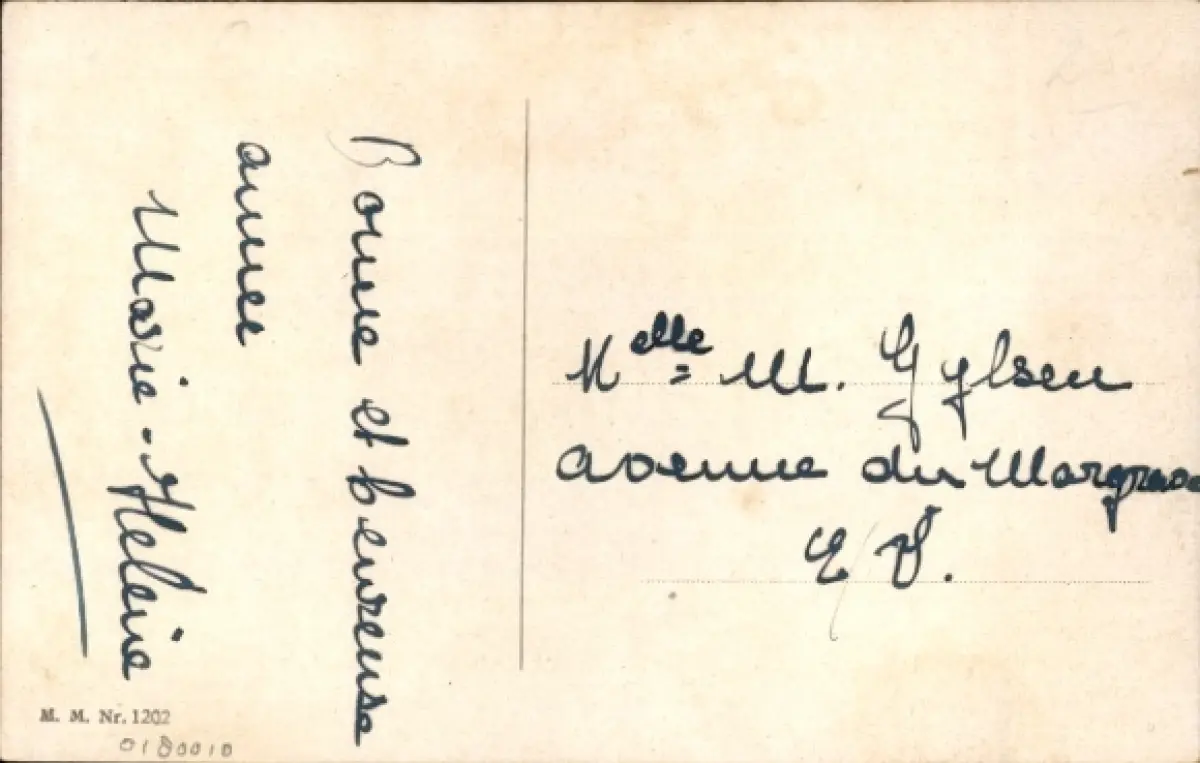 Bonne et heureuse
annee
Marie-Helene
M. M. Nr. 1202
0180010
Melle M. Gylsen
avenue du Margrave
E/V.